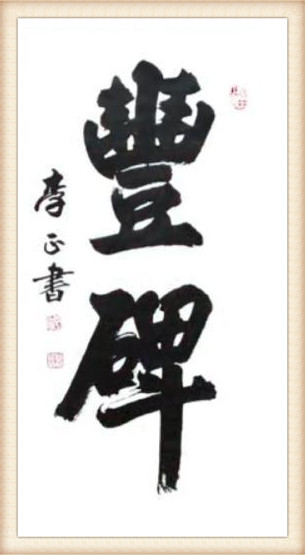 豐碑
李正書